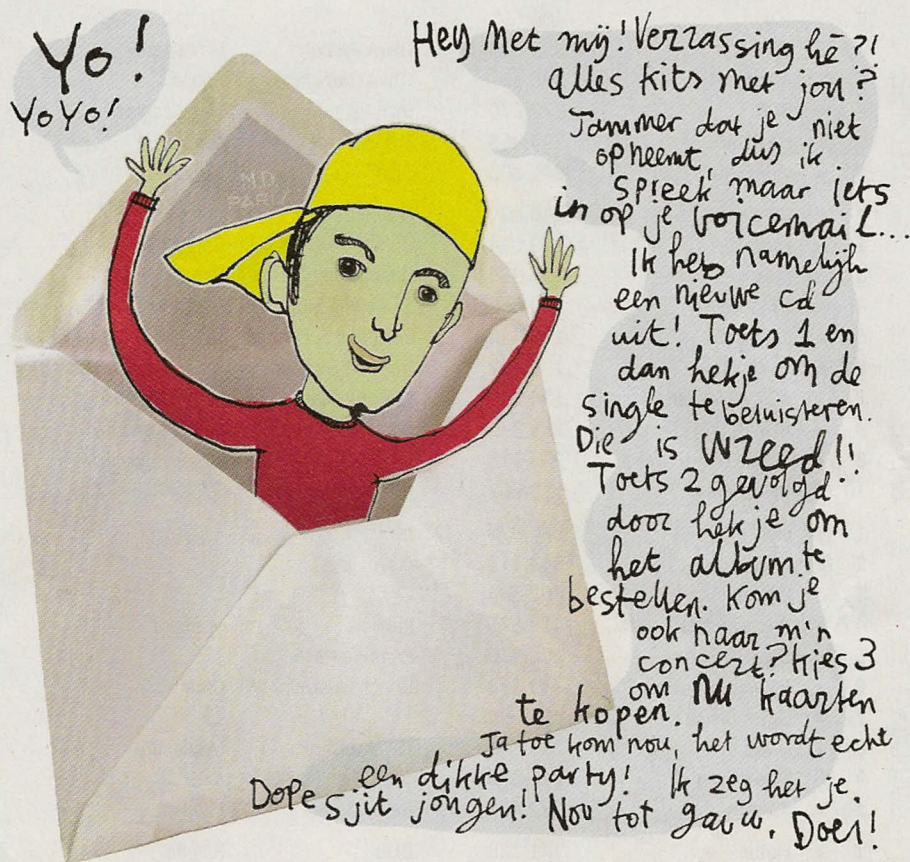 Yo!
YoYo!
Hey Met mij! Verrassing hè?!
alles kits met jou?
Jammer dat je niet
opneemt, dus ik
spreek maar iets
in op je voicemail...
Ik heb namelijk
een nieuwe cd
uit! Toets 1 en
dan hekje om de
single te beluisteren.
Die is Wreed!!
Toets 2 gevolgd
door hekje om
het album te
bestellen. Kom je
ook naar m'n
concert? Kies 3
om NU kaarten
te kopen.
Ja toe kom nou, het wordt echt
een dikke party! Ik zeg het je.
Dope sjit jongen! Nou tot gauw. Doei!